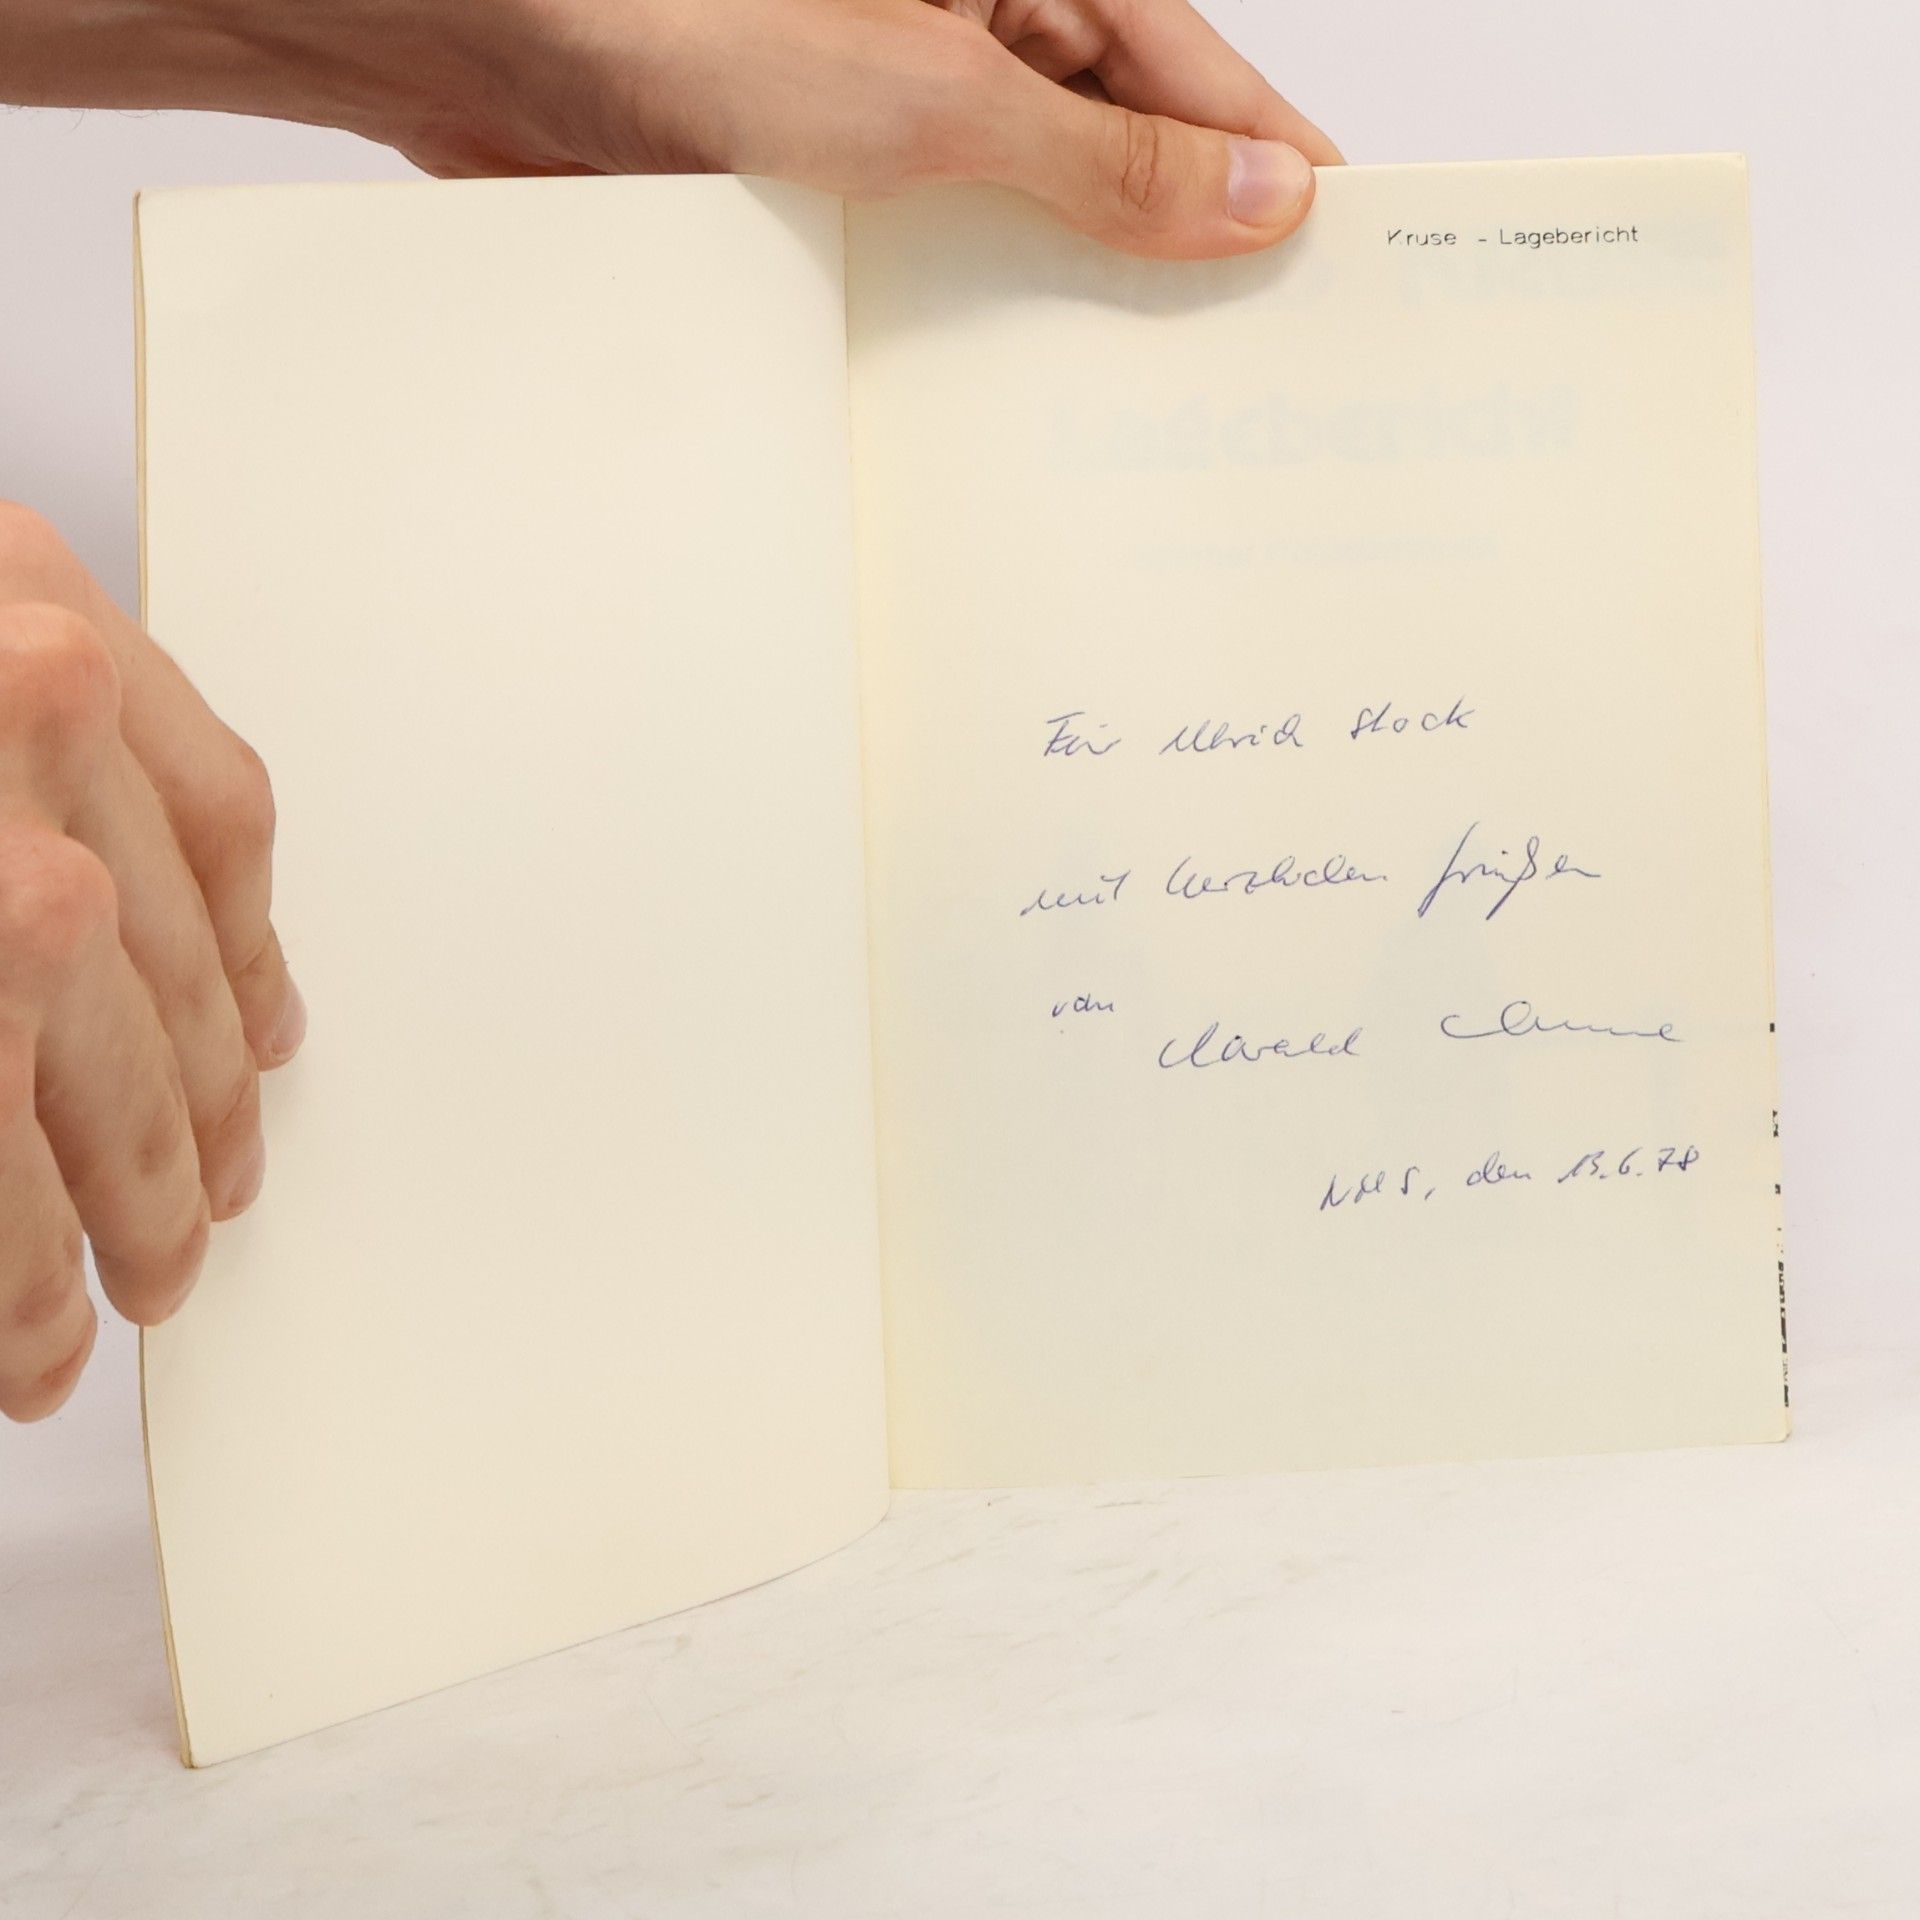 Kruse - Lagebericht
Für Ulrich Stock
mit herzlichen Grüßen
von
Harald
NMS, den 13.6.78